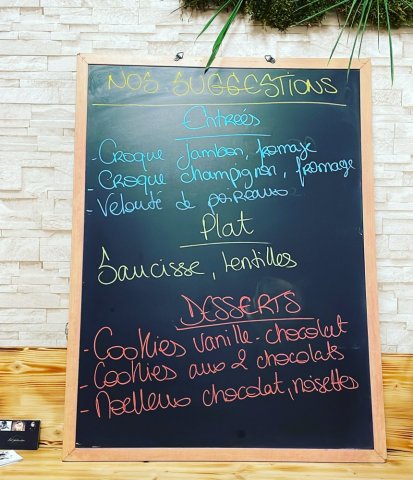 NOS SUGGESTIONS
Entrées
- Croque Jambon, fromage
- Croque champignon, fromage
- Velouté de poireaux
Plat
Saucisse, lentilles
DESSERTS
- Cookies vanille-chocolat
- Cookies aux 2 chocolats
- Moelleux chocolat, noisettes